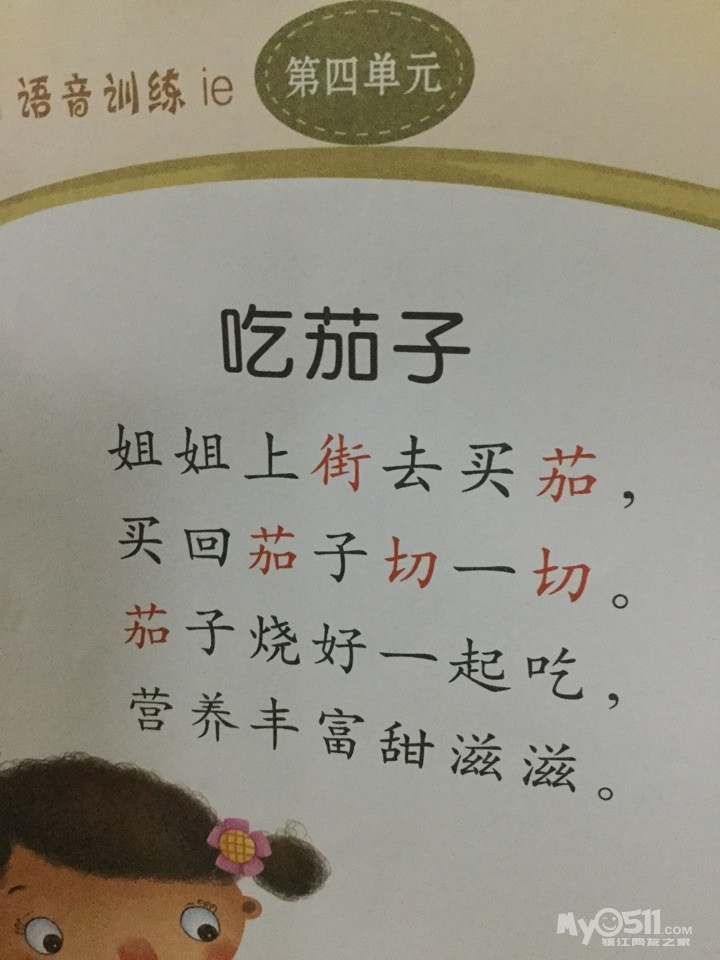 语音训练 ie
第四单元
吃茄子
姐姐上街去买茄，
买回茄子切一切。
茄子烧好一起吃，
营养丰富甜滋滋。
My0511.COM
镇江网友之家